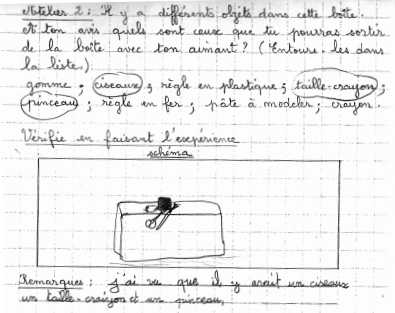 Atelier 2 : Il y a différents objets dans cette boîte.
A ton avis quels sont ceux que tu pourras sortir
de la boîte avec ton aimant ? (Entoure-les dans
la liste.)
gomme ; ciseaux ; règle en plastique ; taille-crayon ;
pinceau ; règle en fer ; pâte à modeler ; crayon.
Vérifie en faisant l'expérience
schéma
Remarques : j'ai vu que il y avait un ciseaux
un taille-craiyon et un pinceau,